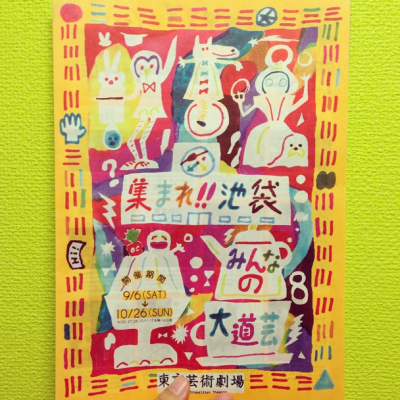 集まれ!!池袋
みんな
の
大道芸
開催期間
9/6(SAT)
10/26(SUN)
8
?
東京芸術劇場